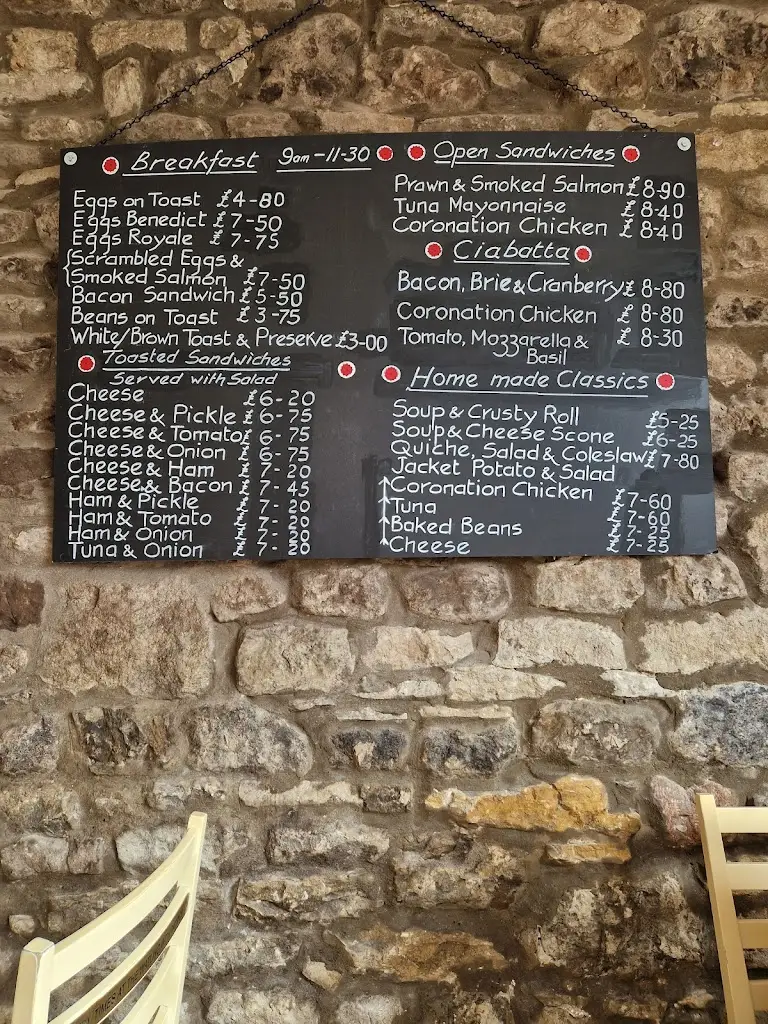 Breakfast 9am-11-30
Eggs on Toast £4-80
Eggs Benedict £7-50
Eggs Royale £7-75
Scrambled Eggs &
Smoked Salmon £7-50
Bacon Sandwich £5-50
Beans on Toast £3-75
White/Brown Toast & Preserve £3-00
Toasted Sandwiches
Served with Salad
Cheese £6-20
Cheese & Pickle £6-75
Cheese & Tomato £6-75
Cheese & Onion £6-75
Cheese & Ham £7-20
Cheese & Bacon £7-45
Ham & Pickle £7-20
Ham & Tomato £7-20
Ham & Onion £7-20
Tuna & Onion £7-20
Open Sandwiches
Prawn & Smoked Salmon £8-90
Tuna Mayonnaise £8-40
Coronation Chicken £8-40
Ciabatta
Bacon, Brie & Cranberry £8-80
Coronation Chicken £8-80
Tomato, Mozzarella & £8-30
Basil
Home made Classics
Soup & Crusty Roll £5-25
Soup & Cheese Scone £6-25
Quiche, Salad & Coleslaw £7-80
Jacket Potato & Salad
Coronation Chicken £7-60
Tuna £7-60
Baked Beans £7-25
Cheese £7-25